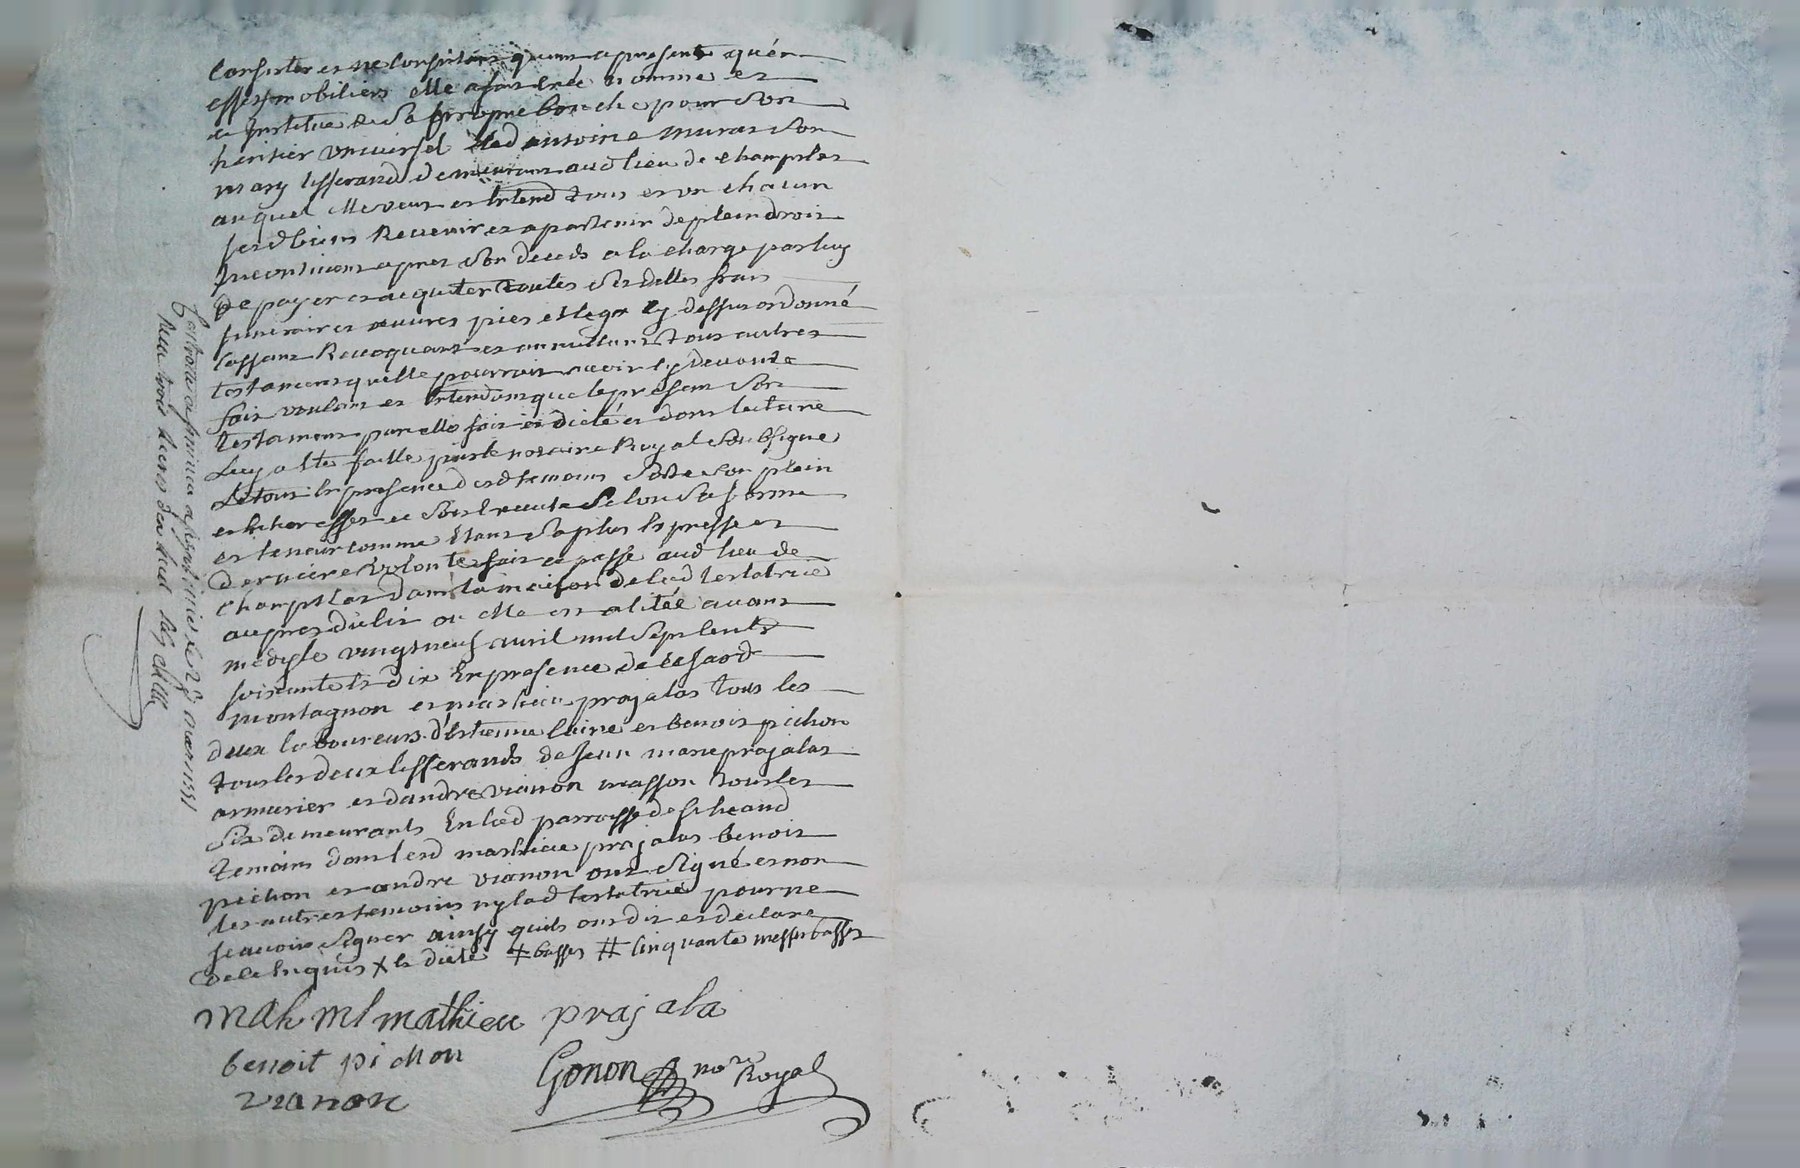 Consister et ne consistant quant a present qu'en
effets mobiliers elle a fait créé nommé et
institué de sa propre bouche pour son
heritier universel led antoine muras son
mary tisserand demeurant aud lieu de champlas
auquel elle veut et entend tous et un chacun
sesd biens Revenir et apartenir de plein droit
incontinent apres son deceds a la charge par luy
de payer et acquiter toutes sesdettes frais
funeraires œuvres pies et legs cy dessus ordonné
cassant Revoquant et annullant tous autres
testaments quelle pourroit avoir cy devant
fait voulant et entendant que le present son
testament par elle fait et dicté et dont lecture
Luy a ete faitte par le notaire Royal soubsigné
Le tout en presence desd temoins sorte son plein
et entier effet et soit executé selon sa forme
et teneur comme etant sa plus expresse et
derniere volonté fait et passé aud lieu de
champlas dans la maison de lad testatrice
aupres du lit ou elle est alitée avant
midy le vingt neuf avril mil sept cents
soixante et dix En presence de
montagnon et mathieu prajalas tous les
deux laboureurs d'estienne et benoit pichon
tous les deux tisserands de Jean marie prajalas
armurier et d'andre vianon masson tous les
six demeurants En lad parroisse de st heand
temoins dont lesd mathieu prajalas benoit
pichon et andre vianon ont signé et non
les autres temoins ny lad testatrice pour ne
scavoir signer ainsy quils ont dit et declaré
de ce enquis x la dicte ‡ basses # cinquante messes basses
mathieu prajala
benoit pichon
vianon
Gonon nore Royal